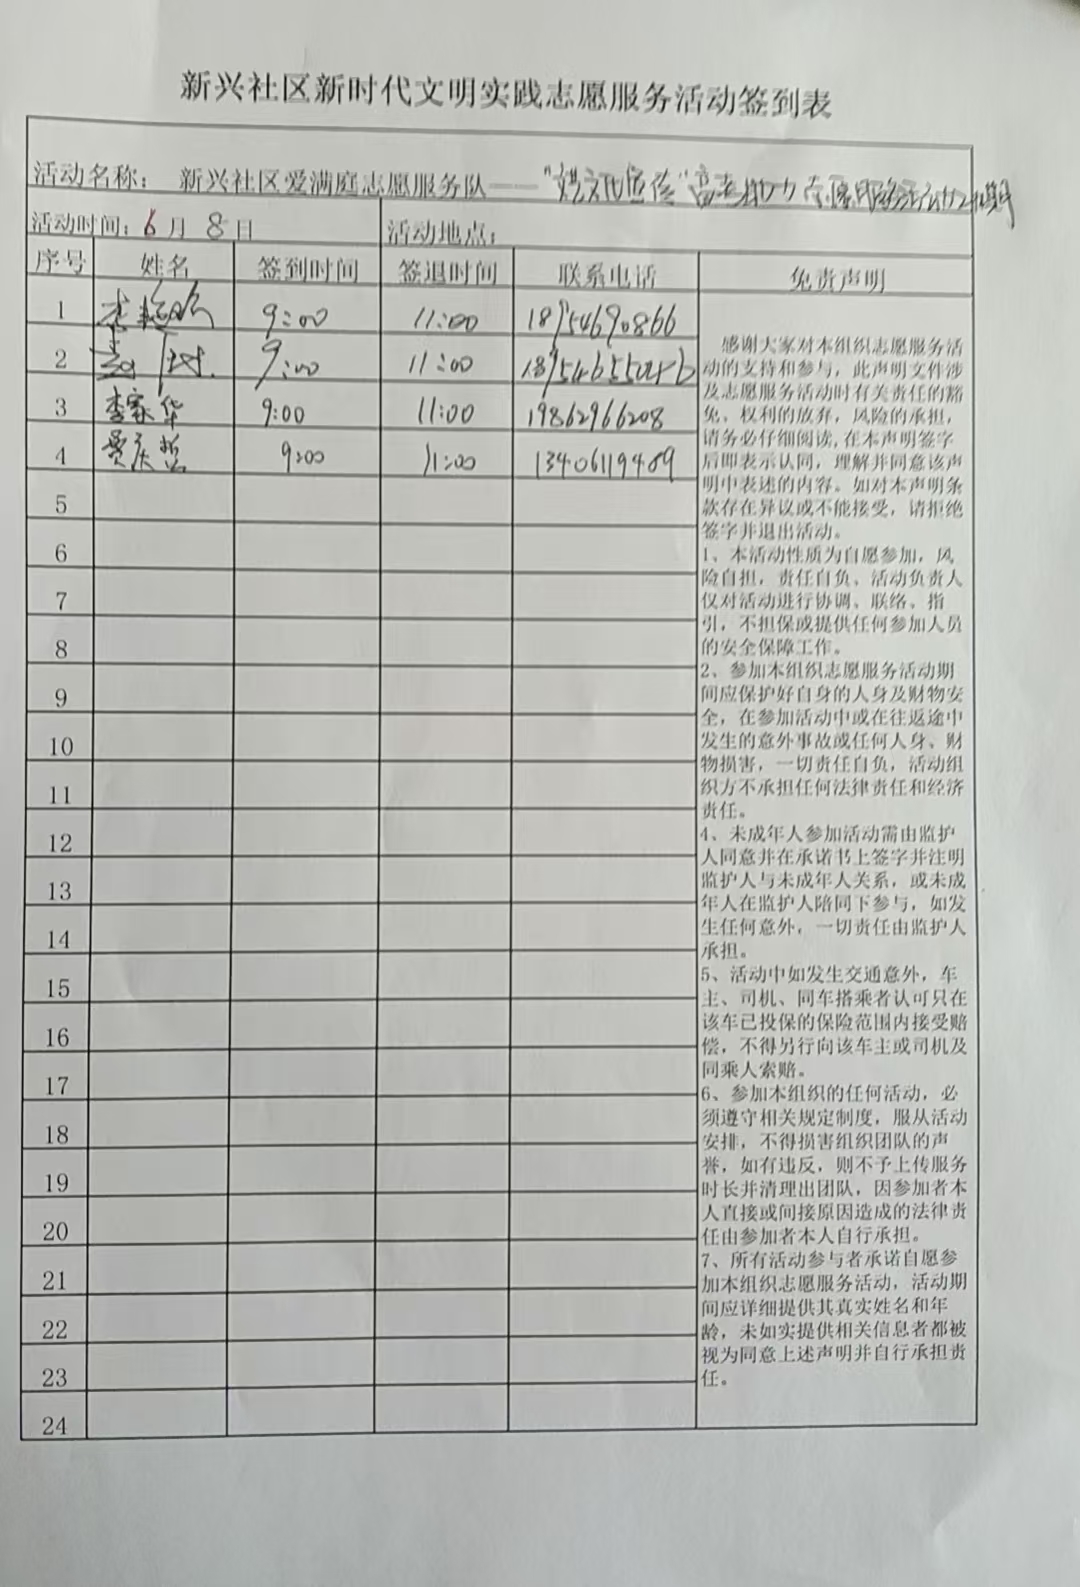 新兴社区新时代文明实践志愿服务活动签到表
活动名称： 新兴社区爱满庭志愿服务队——“ 文化宣传”高考助力志愿服务活动 期
活动时间：6月8日 活动地点：
序号 姓名 签到时间 签退时间 联系电话 免责声明
1 9:00 11:00 18754690866
2 9:00 11:00
3 李家华 9:00 11:00 19862966208
4 贾庆哲 9:00 11:00 13406119489
5
6
7
8
9
10
11
12
13
14
15
16
17
18
19
20
21
22
23
24
感谢大家对本组织志愿服务活
动的支持和参与，此声明文件涉
及志愿服务活动时有关责任的豁
免、权利的放弃，风险的承担，
请务必仔细阅读,在本声明签字
后即表示认同，理解并同意该声
明中表述的内容。如对本声明条
款存在异议或不能接受，请拒绝
签字并退出活动。
1、本活动性质为自愿参加，风
险自担，责任自负、活动负责人
仅对活动进行协调、联络、指
引，不担保或提供任何参加人员
的安全保障工作。
2、参加本组织志愿服务活动期
间应保护好自身的人身及财物安
全，在参加活动中或在往返途中
发生的意外事故或任何人身、财
物损害，一切责任自负，活动组
织方不承担任何法律责任和经济
责任。
4、未成年人参加活动需由监护
人同意并在承诺书上签字并注明
监护人与未成年人关系，或未成
年人在监护人陪同下参与，如发
生任何意外，一切责任由监护人
承担。
5、活动中如发生交通意外，车
主、司机、同车搭乘者认可只在
该车已投保的保险范围内接受赔
偿，不得另行向该车主或司机及
同乘人索赔。
6、参加本组织的任何活动，必
须遵守相关规定制度，服从活动
安排，不得损害组织团队的声
誉，如有违反，则不予上传服务
时长并清理出团队，因参加者本
人直接或间接原因造成的法律责
任由参加者本人自行承担。
7、所有活动参与者承诺自愿参
加本组织志愿服务活动，活动期
间应详细提供其真实姓名和年
龄，未如实提供相关信息者都被
视为同意上述声明并自行承担责
任。